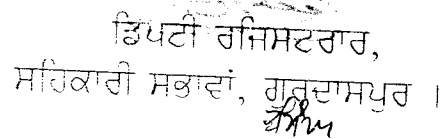 ਡਿਪਟੀ ਰਜਿਸਟਰਾਰ,
ਸਹਿਕਾਰੀ ਸਭਾਵਾਂ, ਗੁਰਦਾਸਪੁਰ ।